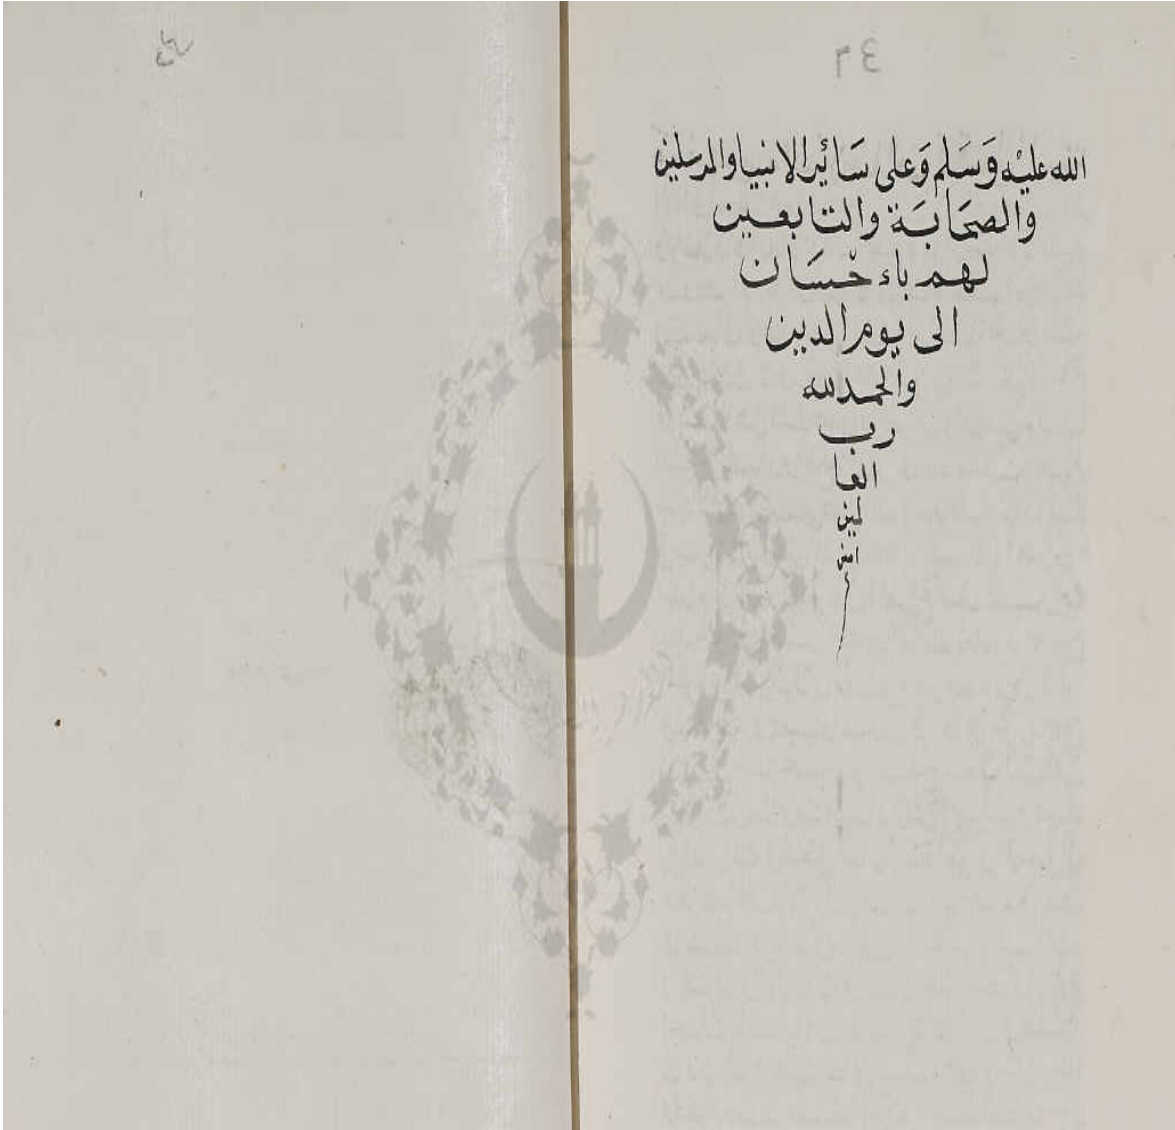 ٤٦
الله عليْه وَسَلم وَعلى سَائِر الانبيا والمرسلين
والصحَابَة والتابعين
لهم باءحْسَان
الى يوم الدين
والحمد لله
رب
العا
لمين
امين